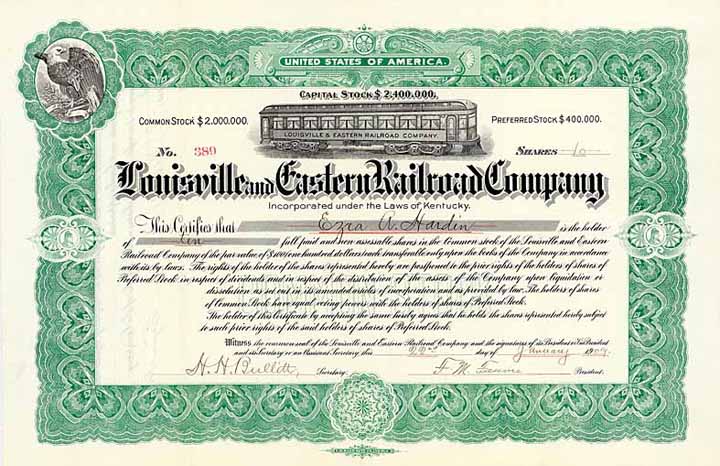 UNITED STATES OF AMERICA.
CAPITAL STOCK $2,400,000.
COMMON STOCK $2,000,000. PREFERRED STOCK $400,000.
LOUISVILLE & EASTERN RAILROAD COMPANY.
No. 389 SHARES 10
Louisville and Eastern Railroad Company
Incorporated under the Laws of Kentucky.
This Certifies that Ezra A. Hardin is the holder
of Ten full paid and non-assessable shares in the Common stock of the Louisville and Eastern
Railroad Company of the par value of $100 (one hundred dollars) each transferable only upon the books of the Company in accordance
with its by-laws. The rights of the holder of the shares represented hereby are postponed to the prior rights of the holders of shares of
Preferred Stock in respect of dividends and in respect of the distribution of the assets of the Company upon liquidation or
dissolution as set out in its amended articles of incorporation and as provided by law. The holders of shares
of Common Stock have equal voting powers with the holders of shares of Preferred Stock.
The holder of this Certificate by accepting the same hereby agrees that he holds the shares represented hereby subject
to such prior rights of the said holders of shares of Preferred Stock.
Witness the common seal of the Louisville and Eastern Railroad Company and the signatures of its President or Vice President
and its Secretary or an Assistant Secretary this 22nd day of January 190
H. H. Bullitt Secretary. F. M. President.